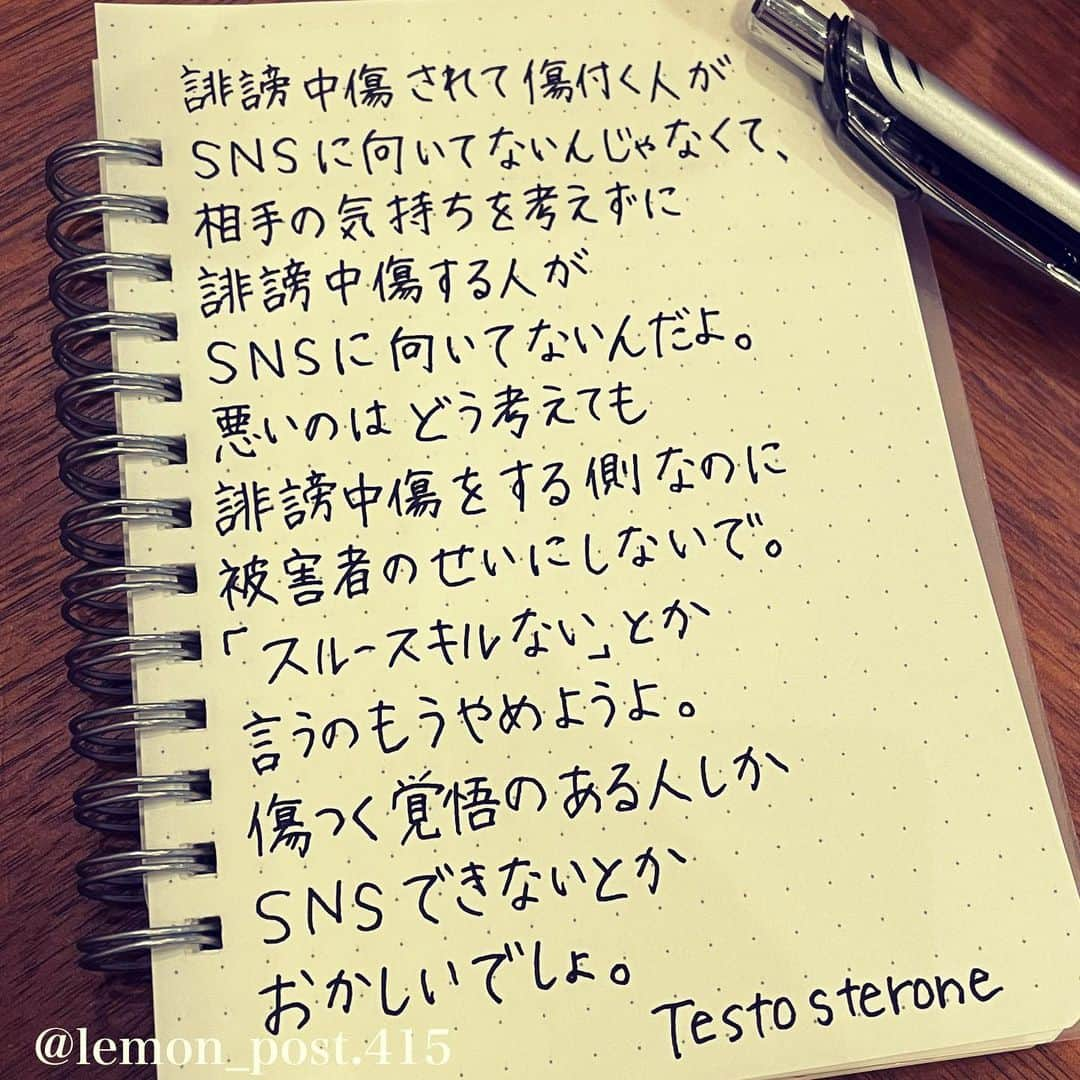 誹謗中傷されて傷付く人が
SNSに向いてないんじゃなくて、
相手の気持ちを考えずに
誹謗中傷する人が
SNSに向いてないんだよ。
悪いのはどう考えても
誹謗中傷をする側なのに
被害者のせいにしないで。
「スルースキルない」とか
言うのもうやめようよ。
傷つく覚悟のある人しか
SNSできないとか
おかしいでしょ。
Testosterone
@lemon_post.415